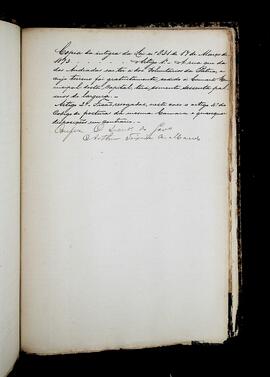 Copia da integra da Lei nº 831 de 17 de Março de
1873
Artigo 1º A rua que da
dos Andradas corta a dos Voluntarios da Patria, e
cujo terreno foi gratuitamente cedido a Camara Mu-
nicipal desta Capital, terá somente sessenta pal-
mos de largura.
Artigo 2º Ficão revogadas, neste caso o artigo 4º do
Codigo de postura da mesma Camara e quaesquer
disposições em contrario.
Confere O
Arthur